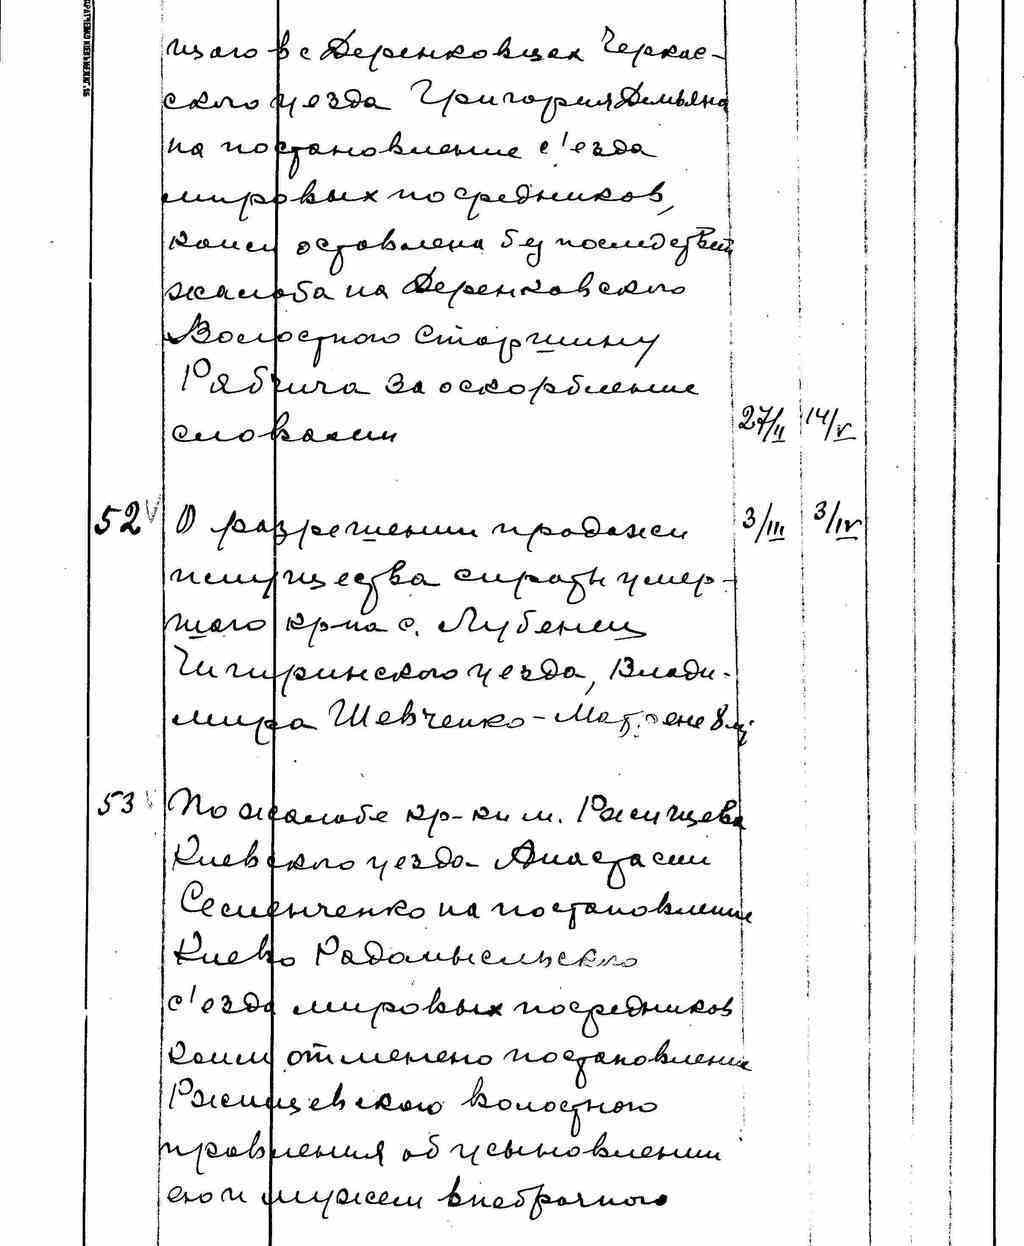 щаго в с Деренковцах Черкас-
ского уезда Григория Демьяна
на постановление с'езда
мировых посредников,
коим оставлена без последствий
жалоба на Деренковского
Волостного Старшину
Рябчича за оскорбление
словами
27/II 14/V
52 О разрешении продажи 3/III 3/IV
имущества сироты умер-
шаго кр-на с. Лубенец
Чигиринского уезда, Влади-
мира Шевченко-Матрене
53 По жалобе кр-ки м. Ржищева
Киевского уезда Анастасии
Семенченко на постановление
Киево Радомысльского
с'езда мировых посредников
коим отменено постановление
Ржищевского волостного
правления об усыновлении
ею и мужем внебрачного